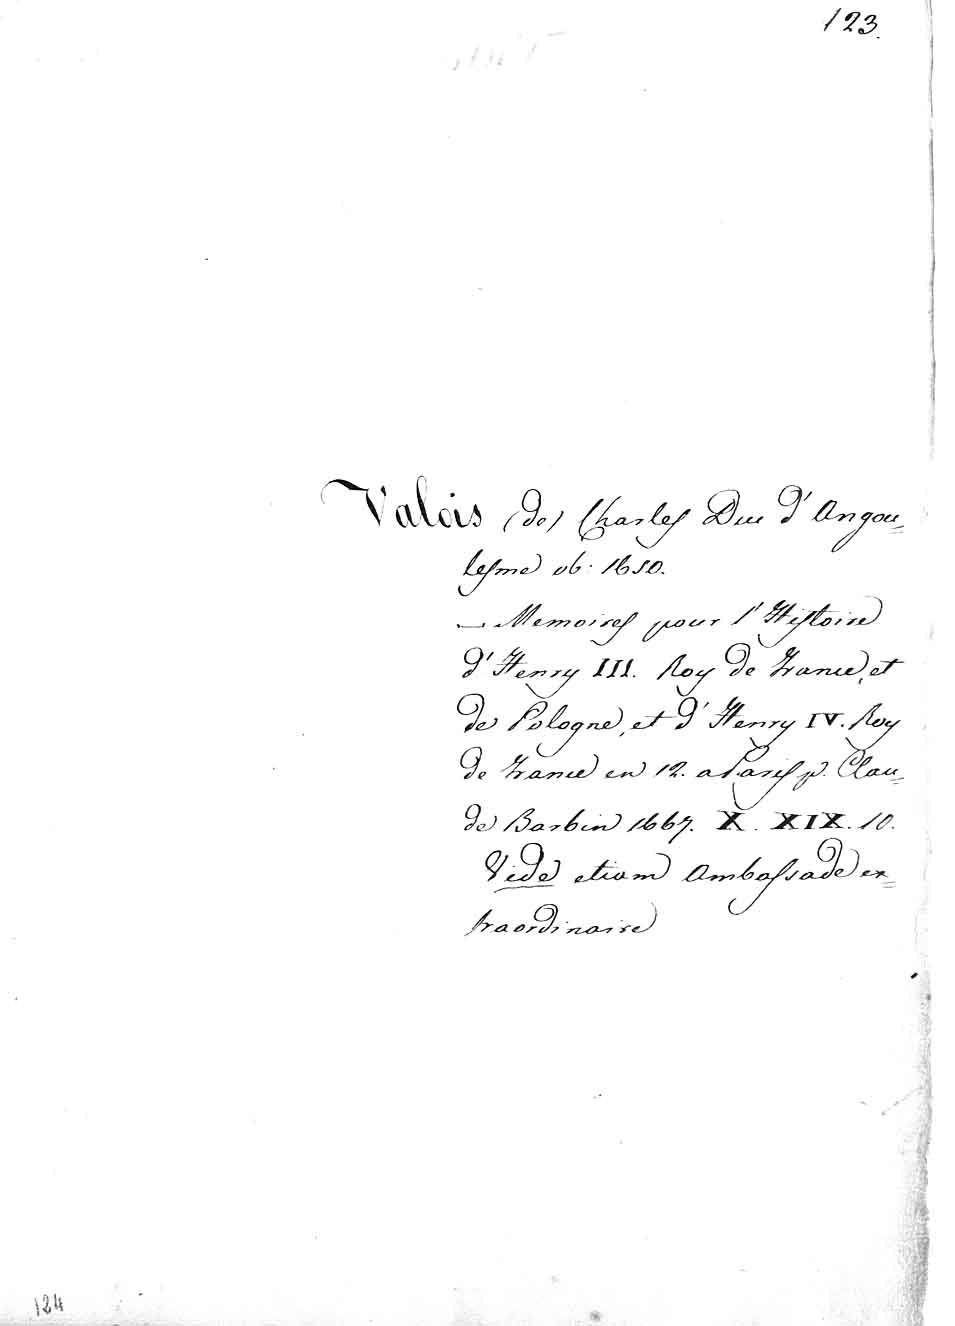 123.
Valois (de) Charles Duc d'Angou=
lesme ob. 1650.
— Memoires pour l'Histoire
d'Henry III. Roy de France, et
de Pologne, et d'Henry IV. Roy
de France en 12. a Paris p. Clau=
de Barbin 1667. X. XIX. 10.
Vide etiam Ambassade ex=
traordinaire
124